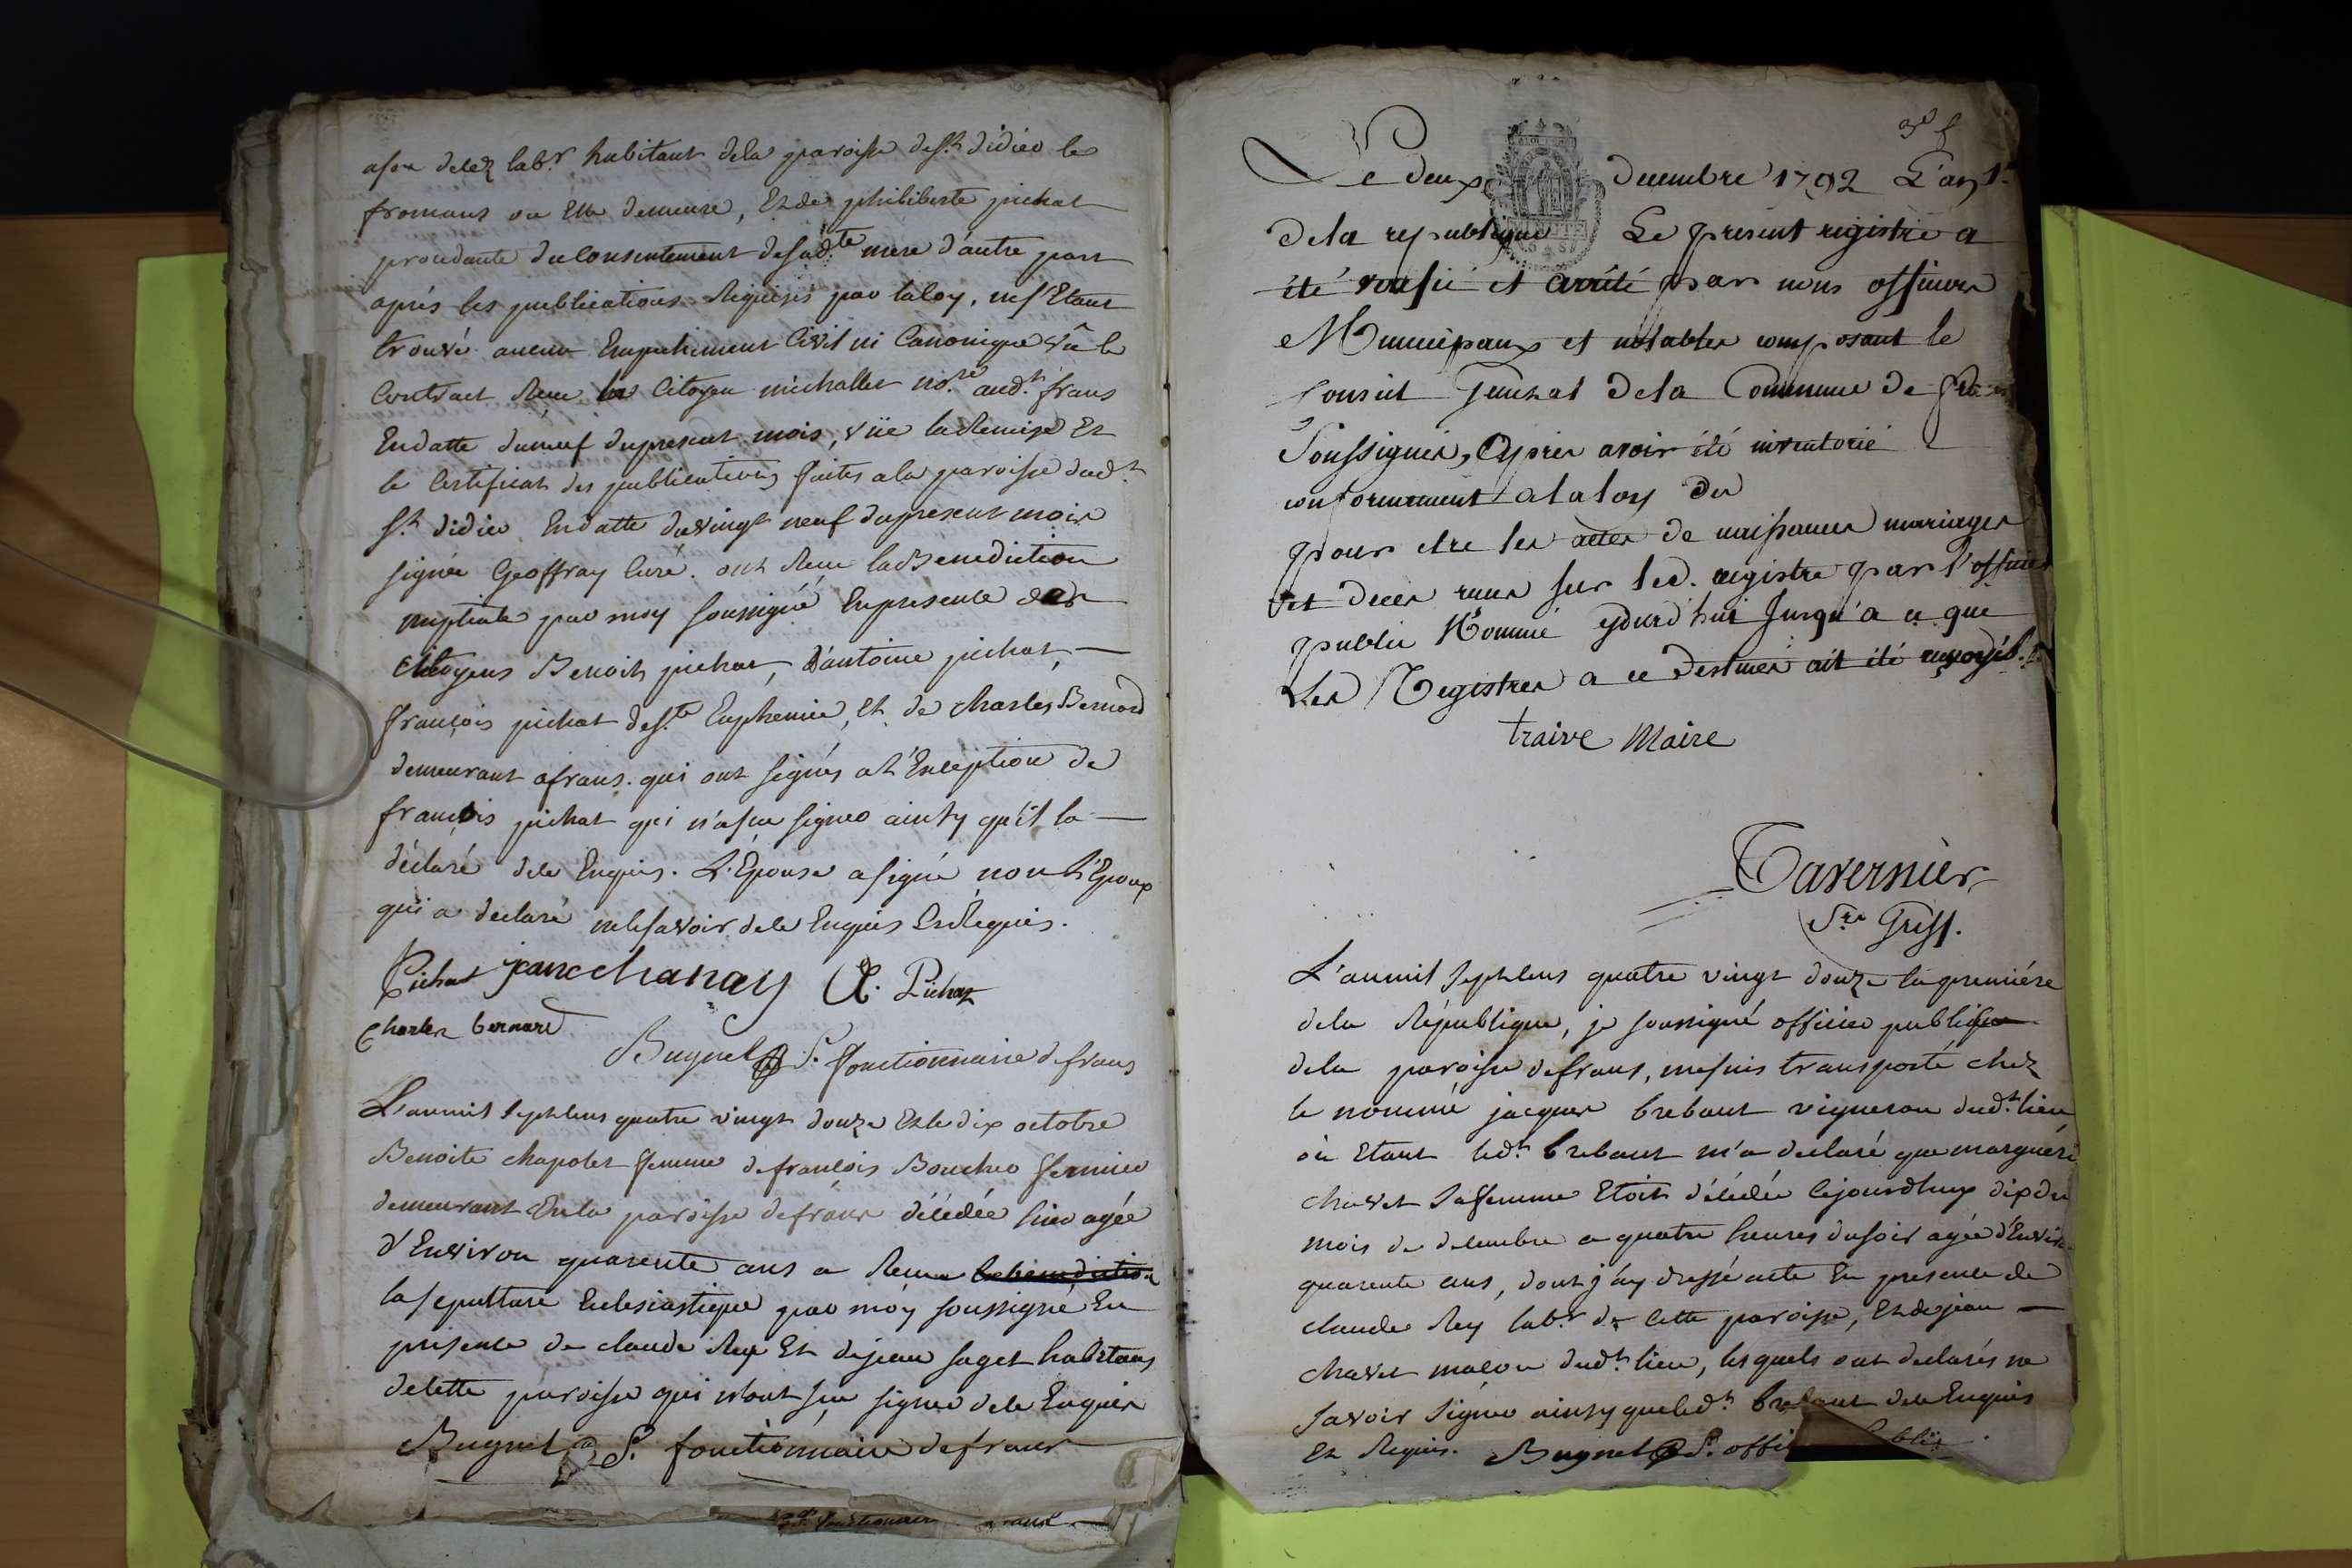 habitant dela paroisse de st didier le
fromans ou Elle demeure, Et de philiberte pichat
procedante du Consentement de sad.te mere d'autre part
après les publications Requises par la loy, ne s'Etant
trouvé aucun Empechement Civil ni Canonique vû le
Contract Recu Citoyen michallet no.re aud.t frans
En datte du neuf du present mois, vüe la Remise Et
le Certificat des publications faites a la paroisse dud.t
St. didier En datte du vingt neuf du present mois
signée Geoffray Curé. ont Recu la Benediction
nuptiale par moy soussigné En presence des
Citoyens Benoit pichat, d'antoine pichat, —
françois pichat de s.te Euphemie, Et de charles Bernard
demeurant a frans. qui ont signés a l'Exception de
francois pichat qui n'a scu signer ainsy qu'il la —
déclaré de ce Enquis. L'Epouse a signé non L'Epoux
qui a declaré ne le savoir de ce Enquis Et Requis.
Pichat jeane chanay A. Pichat
Charles bernard
Bugnet P. S. fonctionnaire de frans
L'an mil sept cens quatre vingt douze Et le dix octobre
Benoite chapolet femme de francois Boucher fermier
demeurant En la paroisse de frans décédée hier agée
d'Environ quarente ans a Recu la benediction
la sepulture Eclesiastique par moy soussigné En
presence de claude Rey Et de jean saget habitans
de cette paroisse qui n'ont scu signer de ce Enquis
Bugnet P. S. fonctionnaire de frans
fonctionnaire
Le deux decembre 1792 L'an 1.
dela republique Le present registre a
été verifié et arrêté par nous officiers
Municipaux et notables composant le
Conseil General dela Commune de
Soussignés, Apres avoir été inventorié
conformement a la loy du
pour etre les actes de naissances mariages
et deces recus sur led. registre par l'officier
public Nommé ejourd'hui Jusqu'a ce que
Les Registres a ce destinés ait été
traive Maire
Tavernier
S.re Greff.
L'an mil sept cens quatre vingt douze la premiére
dela République, je soussigné officier public
dela paroisse de frans, me suis transporté chez
le nommé jacques brebant vigneron dud.t lieu
où Etant led.t brebant m'a declaré que
chavet sa femme Etoit décédée cejourdhuy dix du
mois de decembre a quatre heures du soir agée
quarente ans, dont j'ay dressé acte En presence de
claude Rey lab.r de Cette paroisse, Et de jean —
chavet maçon dud.t lieu, lesquels ont declarés ne
savoir signer ainsy que led.t brebant de ce Enquis
Et Requis. Bugnet P. S.